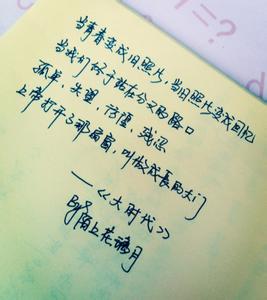 当青春变成旧照片，当旧照片变成回忆
当我们终于站在分叉的路口
孤单，失望，彷徨，残忍
上帝打开了那扇窗，叫做成长的大门
——《大时代》
By
陌上花谢月